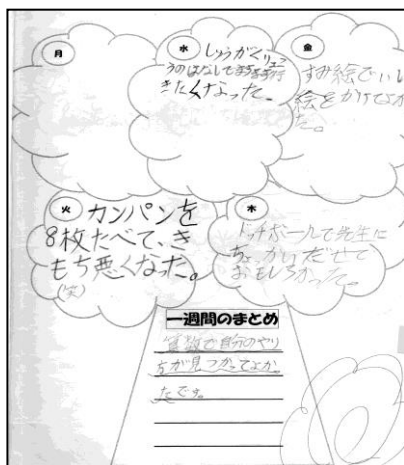 月
水
しゅうがくりょこ
うのはなしでますます行
きたくなった。
金
すみ絵でいい
絵をかけてよか
た。
火
カンパンを
8枚たべて、き
もち悪くなった。
(笑)
木
ドッチボールで先生に
ちょっかいだせて
おもしろかった。
一週間のまとめ
算数で自分のやり
方が見つかってよか
たです。